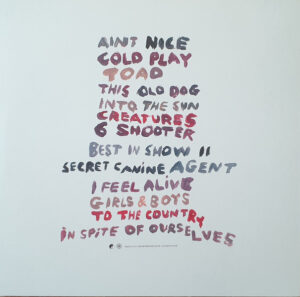 AINT NICE
COLD PLAY
TOAD
THIS OLD DOG
INTO THE SUN
CREATURES
6 SHOOTER
BEST IN SHOW II
SECRET CANINE AGENT
I FEEL ALIVE
GIRLS & BOYS
TO THE COUNTRY
IN SPITE OF OURSELVES